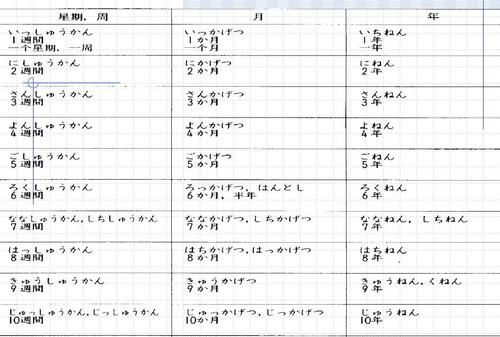 星期，周 月 年
いっしゅうかん いっかげつ いちねん
1週間 1か月 1年
一个星期，一周 一个月 一年
にしゅうかん にかげつ にねん
2週間 2か月 2年
さんしゅうかん さんかげつ さんねん
3週間 3か月 3年
よんしゅうかん よんかげつ よねん
4週間 4か月 4年
ごしゅうかん ごかげつ ごねん
5週間 5か月 5年
ろくしゅうかん ろっかげつ，はんとし ろくねん
6週間 6か月，半年 6年
ななしゅうかん，しちしゅうかん ななかげつ，しちかげつ ななねん，しちねん
7週間 7か月 7年
はっしゅうかん はちかげつ，はっかげつ はちねん
8週間 8か月 8年
きゅうしゅうかん きゅうかげつ きゅうねん，くねん
9週間 9か月 9年
じゅっしゅうかん，じっしゅうかん じゅっかげつ，じっかげつ じゅうねん
10週間 10か月 10年